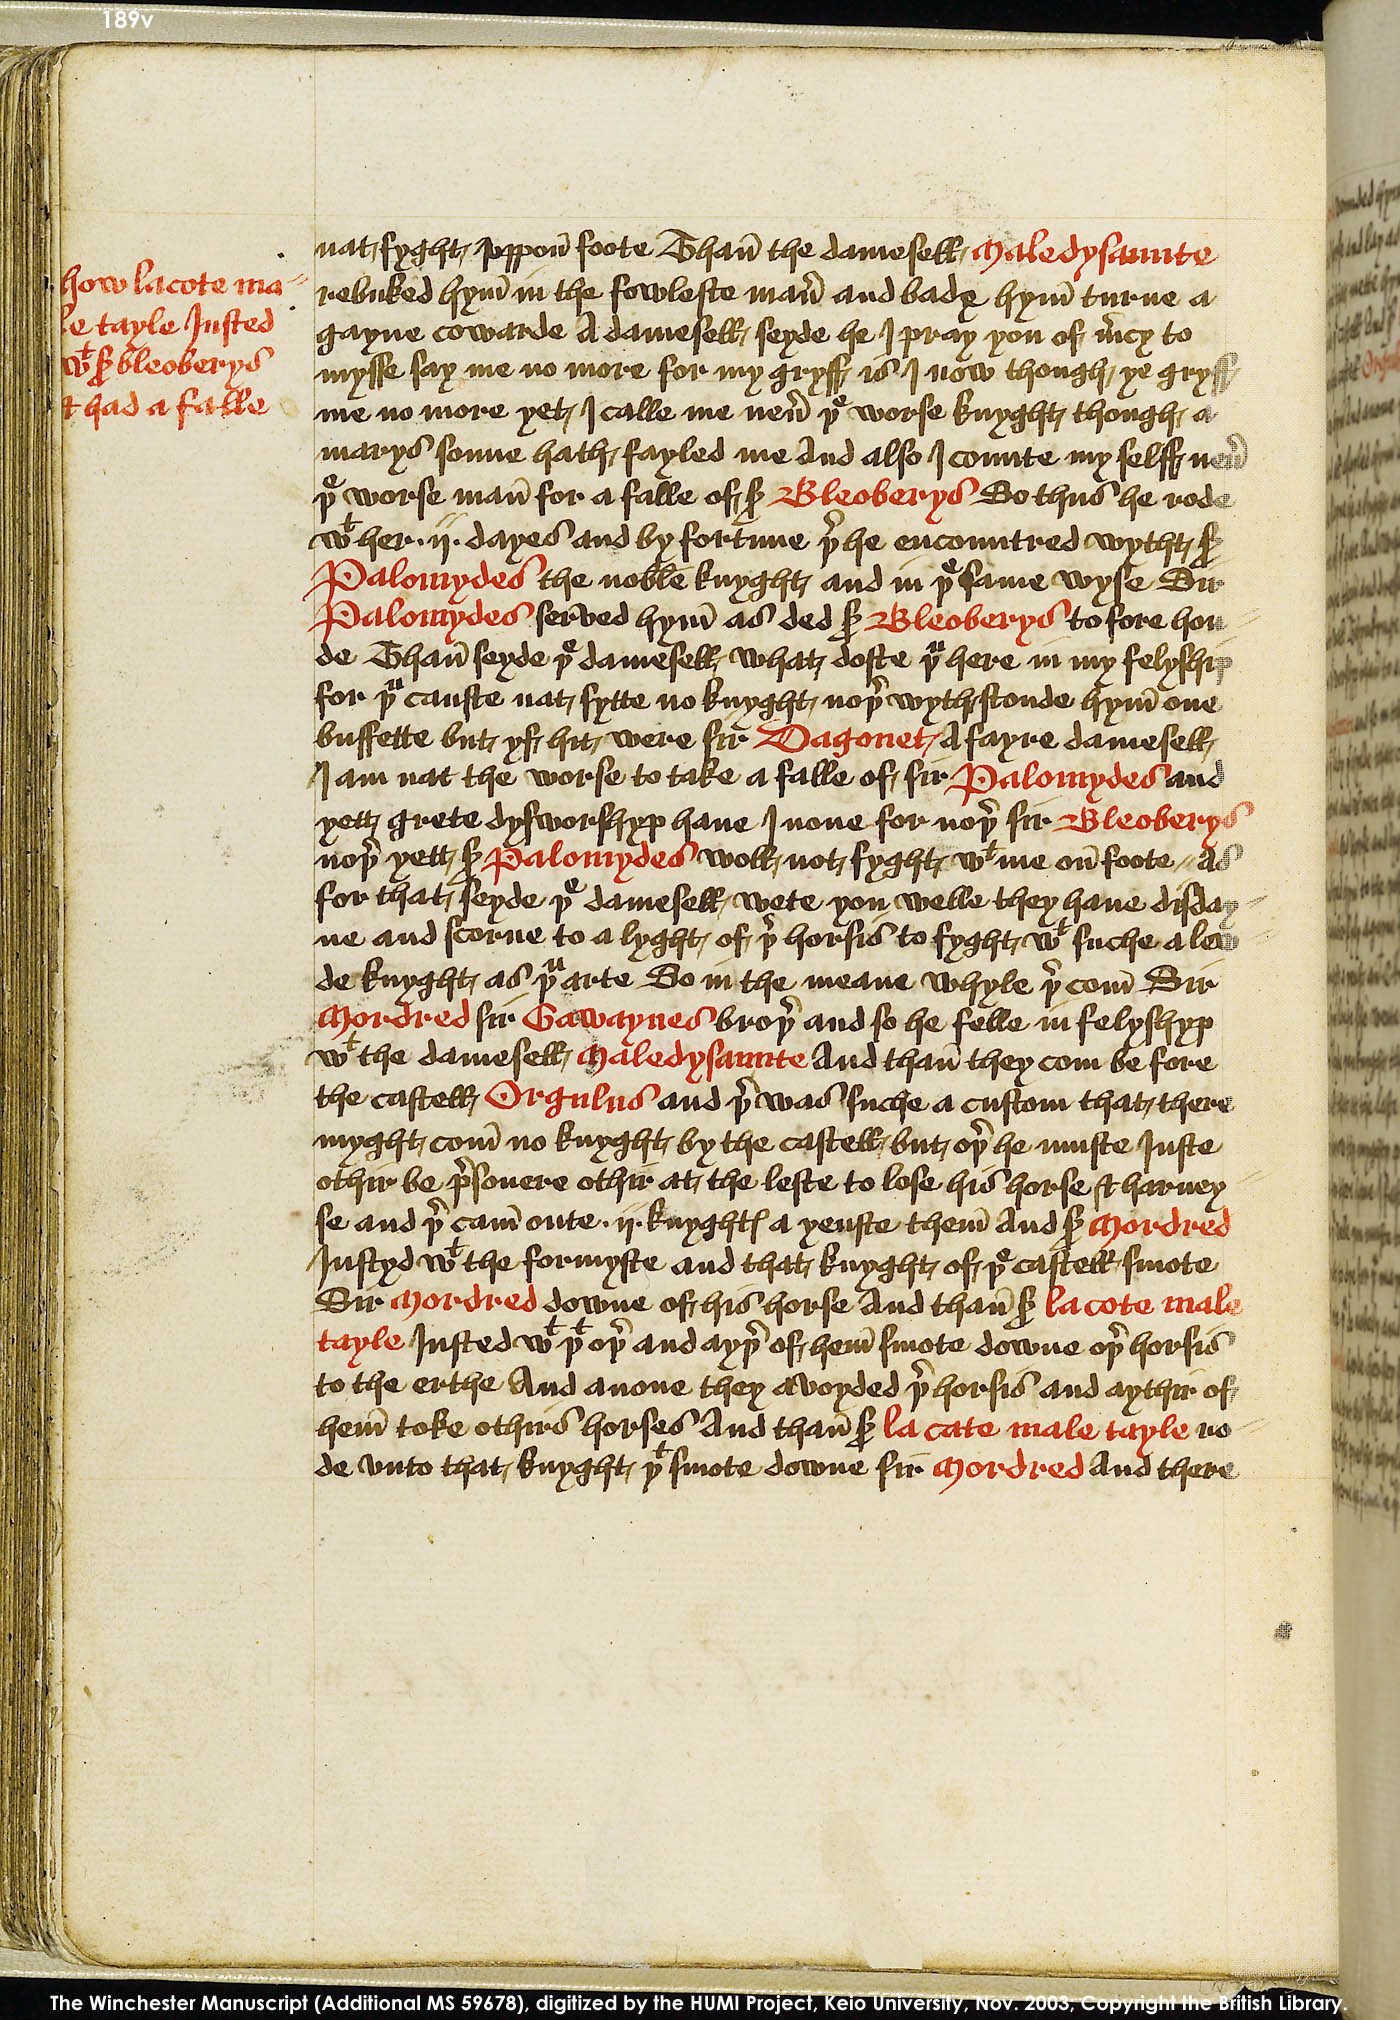 189v
how lacote ma
le tayle Iusted
wᵗ sͬ bleoberys
⁊ had a falle
nat fyght vppon̄ foote Than̄ the damesell Maledysaunte
rebuked hym̄ in the fowleste man̄ and bade hym̄ turne a
gayne cowarde A damesell seyde he I pray you of m̄cy to
mysse say me no more for my gryff is I now though ye gryff
me no more yet I calle me neū þᵉ worse knyght though a
marys sonne hath fayled me And also I counte my selff neū
þᵉ worse man̄ for a falle of sͬ Bleoberys So thus he rode
wᵗ her · ij · dayes and by fortune þͬ he encountred wyth sͬ
Palomydes the noble knyght and in þᵉ same wyse Sir
Palomydes serued hym̄ as ded sͬ Bleoberys to fore hon
de Than̄ seyde þᵉ damesell what doste þᵘ here in my felyship
for þᵘ canste nat sytte no knyght noþͬ wythstonde hym̄ one
buffette but yf hit were sir Dagonet A fayre damesell
I am nat the worse to take a falle of sir Palomydes and
yett grete dysworshyp haue I none for noþͬ sir Bleoberys
noþͬ yett sͬ Palomydes woll not fyght wᵗ me on̄ foote // As
for that seyde þᵉ damesell wete you welle they haue disday
ne and scorne to a lyght of þͬ horsis to fyght wᵗ suche a lew
de knyght as þᵘ arte So in the meane whyle þͬ com̄ Sir
Mordred sir Gawaynes broþͬ and so he felle in felyshyp
wᵗ the damesell Maledysaunte And than̄ they com be fore
the castell Orgulus and þͬ was suche a custom that there
myght com̄ no knyght by the castell but oþͬ he muste Iuste
othir be pͬsonere othir at the leste to lose his horse ⁊ harney
se and þͬ cam̄ oute · ij · knyghtꝭ a yenste them̄ And sͬ Mordred
Iustyd wᵗ the formyste and that knyght of þᵉ castell smote
Sir Mordred downe of his horse And than̄ sͬ la cote male
tayle Iusted wᵗ þᵗ oþͬ and ayþͬ of hem̄ smote downe oþͬ horsis
to the erthe And anone they avoyded þͬ horsis and aythir of
hem̄ toke othirs horses And than̄ sͬ la cate male tayle ro
de vnto that knyght þᵗ smote downe sir Mordred And there
The Winchester Manuscript (Additional MS 59678), digitized by the HUMI Project, Keio University, Nov. 2003, Copyright the British Library.